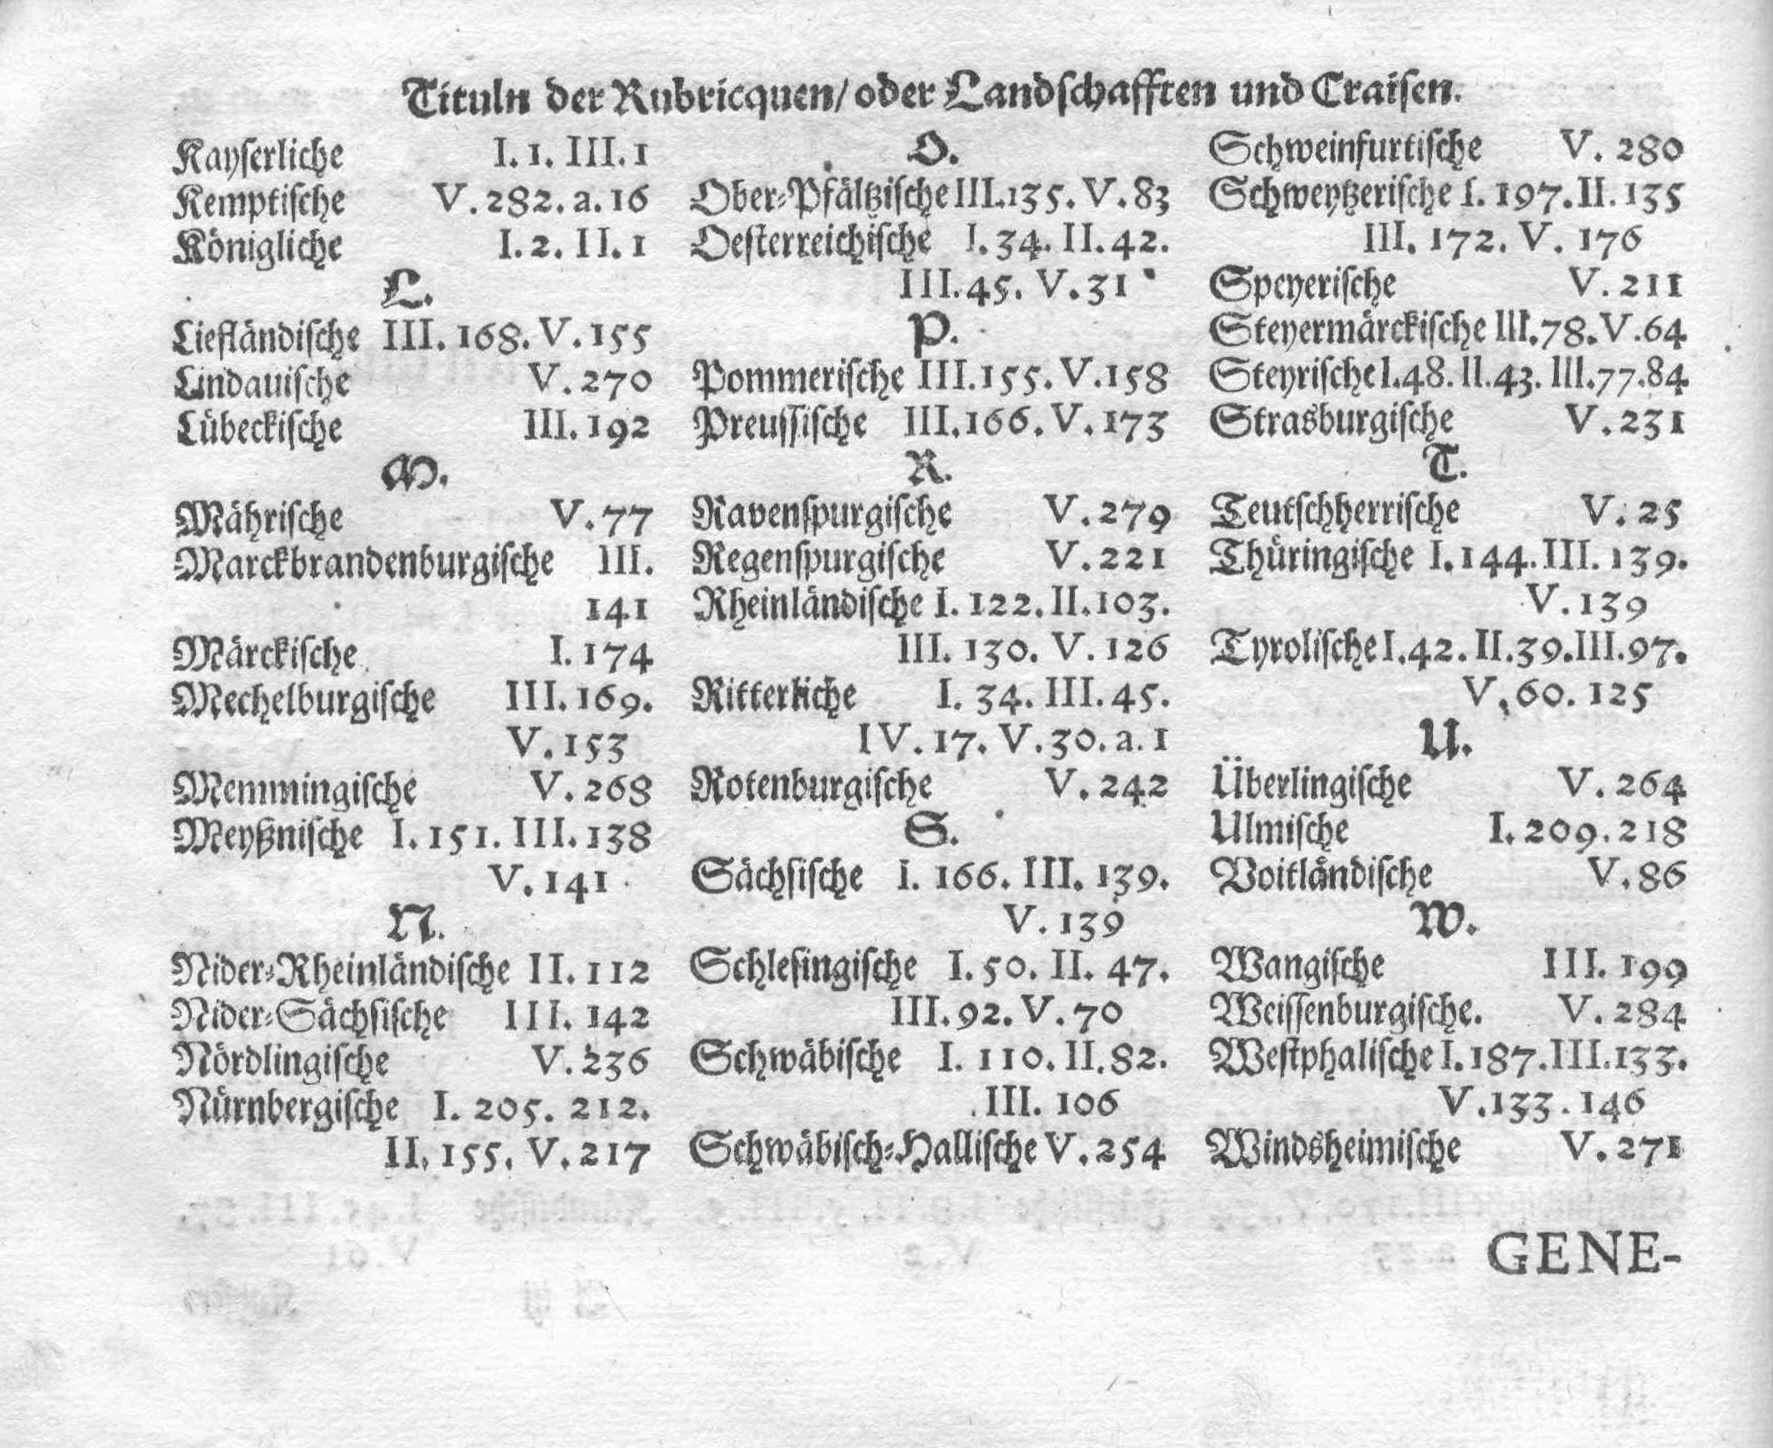 Tituln der Rubricquen/ oder Landschafften und Craisen.
Kayserliche I. 1. III. 1
Kemptische V. 282. a. 16
Königliche I. 2. II. 1
L.
Liefländische III. 168. V. 155
Lindauische V. 270
Lübeckische III. 192
M.
Mährische V. 77
Marckbrandenburgische III.
141
Märckische I. 174
Mechelburgische III. 169.
V. 153
Memmingische V. 268
Meyßnische I. 151. III. 138
V. 141
N.
Nider-Rheinländische II. 112
Nider-Sächsische III. 142
Nördlingische V. 236
Nürnbergische I. 205. 212.
II. 155. V. 217
O.
Ober-Pfältzische III. 135. V. 83
Oesterreichische I. 34. II. 42.
III. 45. V. 31
P.
Pommerische III. 155. V. 158
Preussische III. 166. V. 173
R.
Ravenspurgische V. 279
Regenspurgische V. 221
Rheinländische I. 122. II. 103.
III. 130. V. 126
Ritterliche I. 34. III. 45.
IV. 17. V. 30. a. 1
Rotenburgische V. 242
S.
Sächsische I. 166. III. 139.
V. 139
Schlesingische I. 50. II. 47.
III. 92. V. 70
Schwäbische I. 110. II. 82.
III. 106
Schwäbisch-Hallische V. 254
Schweinfurtische V. 280
Schweytzerische I. 197. II. 135
III. 172. V. 176
Speyerische V. 211
Steyermärckische III. 78. V. 64
Steyrische I. 48. II. 43. III. 77. 84
Strasburgische V. 231
T.
Teutschherrische V. 25
Thüringische I. 144. III. 139.
V. 139
Tyrolische I. 42. II. 39. III. 97.
V. 60. 125
U.
Überlingische V. 264
Ulmische I. 209. 218
Voitländische V. 86
W.
Wangische III. 199
Weissenburgische. V. 284
Westphalische I. 187. III. 133.
V. 133. 146
Windsheimische V. 271
GENE-